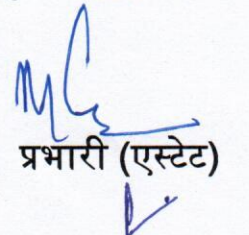 प्रभारी (एस्टेट)